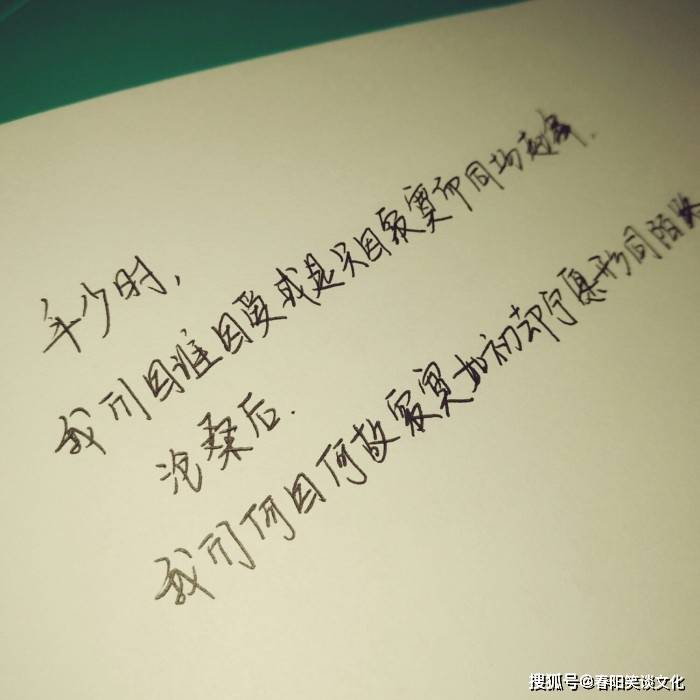 年少时，
我们因谁因爱或是只因寂寞而同场起舞.
沧桑后.
我们何因何故寂寞如初却宁愿形同陌
搜狐号@春阳笑谈文化